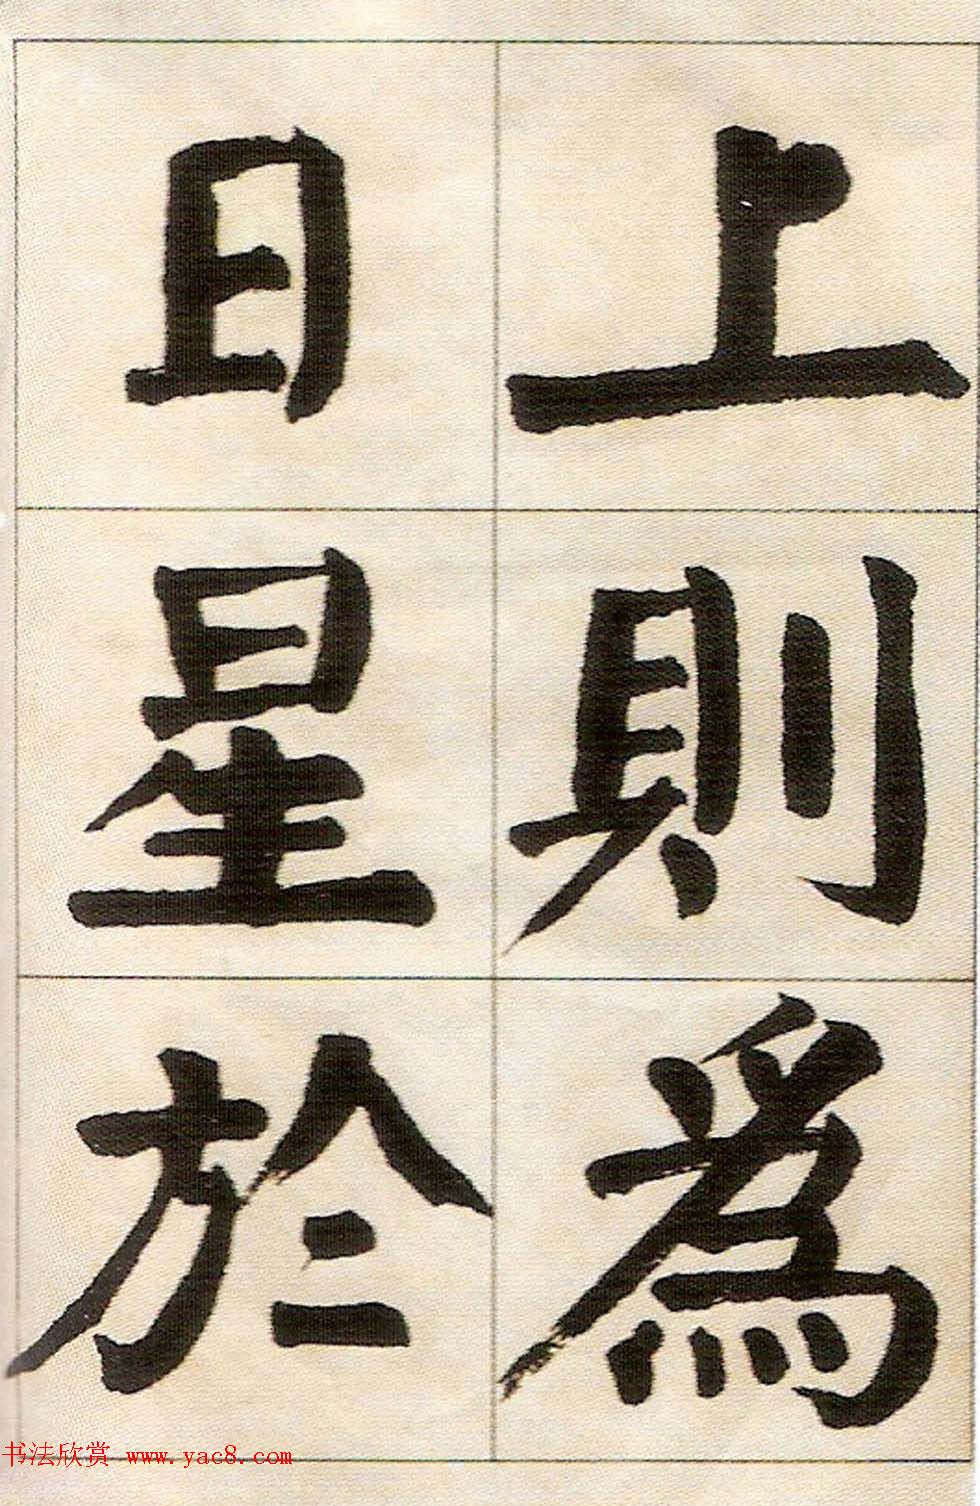 上則為
日星於
书法欣赏 www.yac8.com